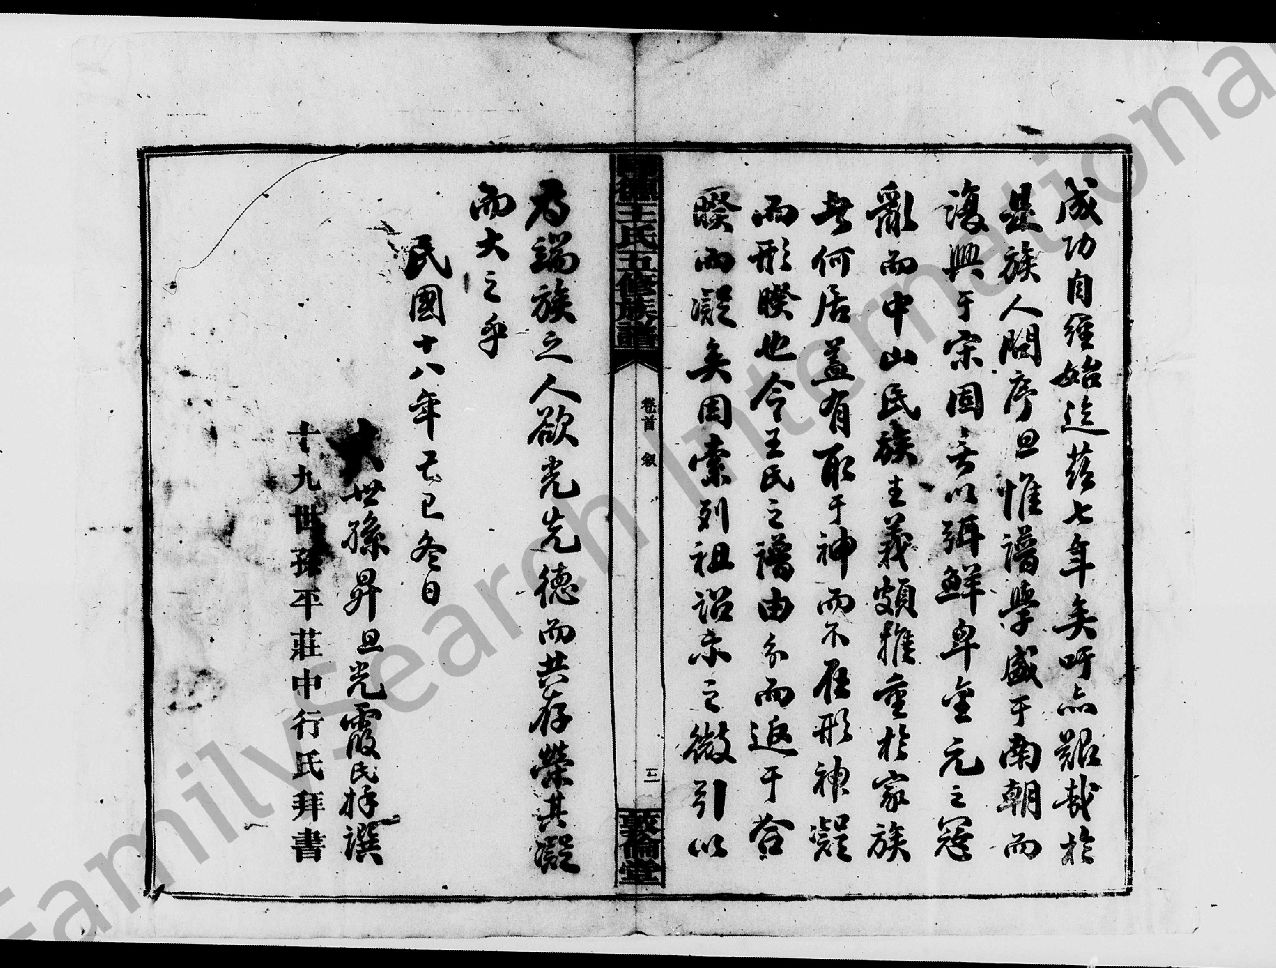 成功自經始迄茲七年矣吁亦艱哉於
是族人問序旦惟譜學盛于南朝而
復興于宋固善以弭鮮卑金元之寇
亂而中山民族主義頗推重於家族
者何居蓋有取于神而不在形神凝
而形暌也今王氏之譜由分而返于合
暌而凝矣固索列祖詒末之微引以
為端族之人欲光先德而共存榮其凝
而大之乎
民國十八年己巳冬日
世孫昇旦光霞氏撰
十九世孫平莊中行氏拜書
王氏五修族譜
卷首 叙
三
敦倫堂
FamilySearch International